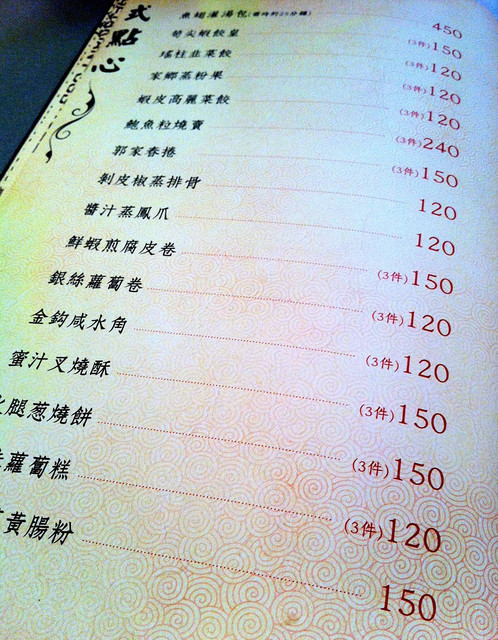 式點心
魚翅灌湯包(需時約25分鐘) 450
筍尖蝦餃皇 (3件)150
瑤柱韭菜餃 (3件)120
家鄉蒸粉果 (3件)120
蝦皮高麗菜餃 (3件)120
鮑魚粒燒賣 (3件)240
郭家春捲 (3件)150
剁皮椒蒸排骨 120
醬汁蒸鳳爪 120
鮮蝦煎腐皮卷 (3件)150
銀絲蘿蔔卷 (3件)120
金鈎咸水角 (3件)120
蜜汁叉燒酥 (3件)150
腿葱燒餅 (3件)150
蘿蔔糕 (3件)120
黃腸粉 150